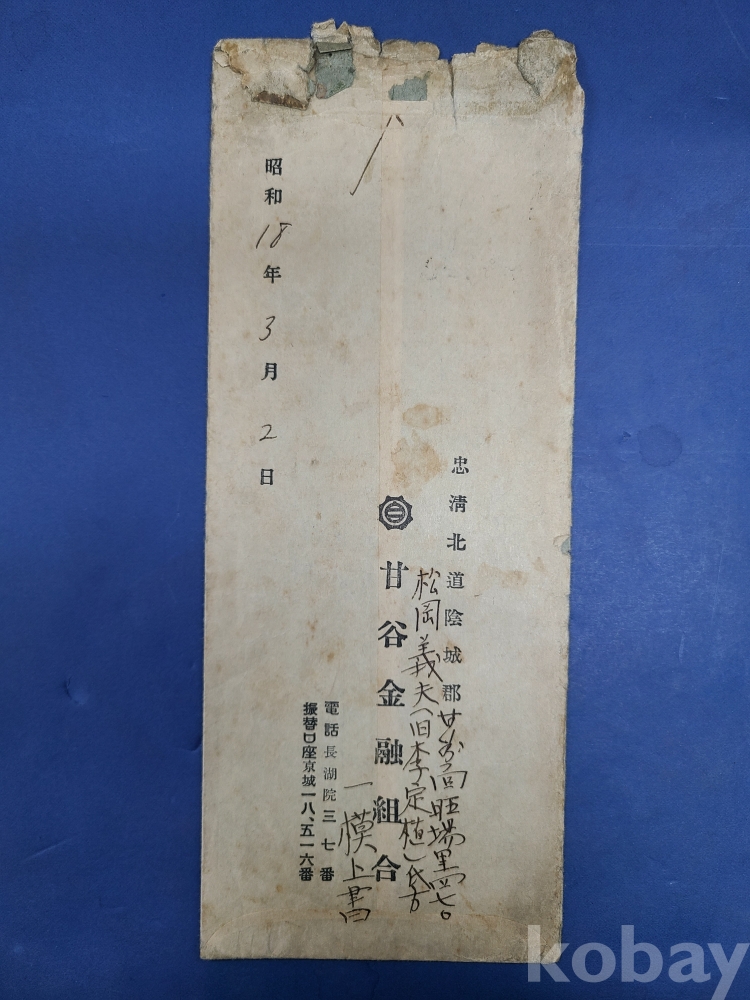 忠淸北道陰城郡甘谷面旺場里四七〇
松岡義夫(旧李定植)氏方
甘谷金融組合
一模上書
電話長湖院三七番
振替口座京城一八、五一六番
昭和18年3月2日
kobay